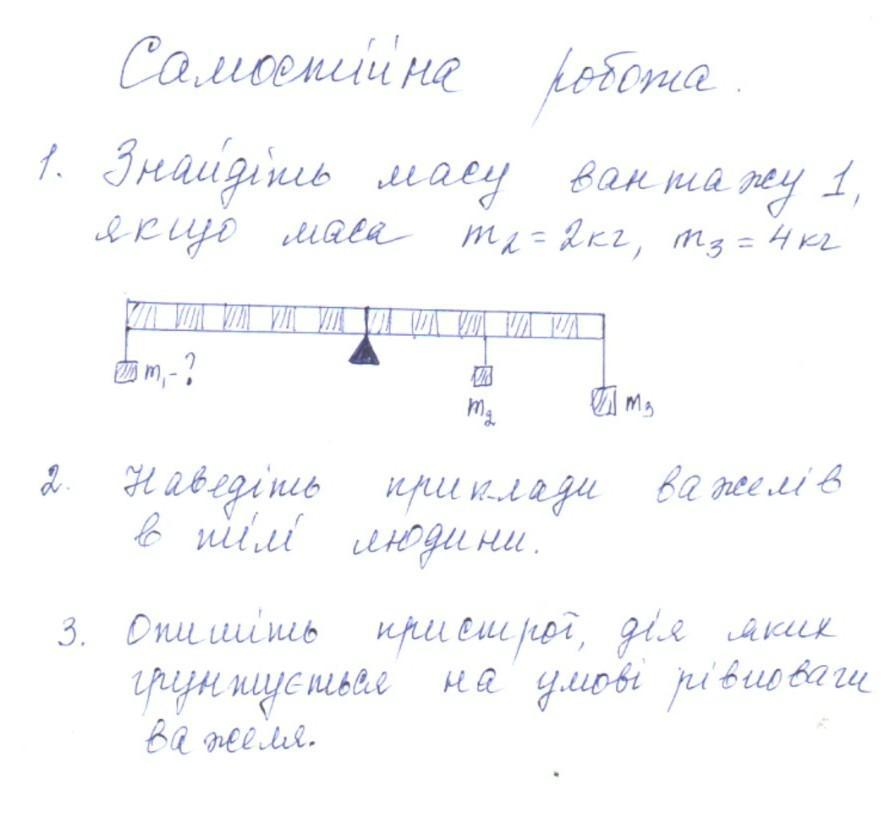 Самостійна робота.
1. Знайдіть масу вантажу 1,
якщо маса m₂ = 2кг, m₃ = 4кг
m₁ - ?
m₂
m₃
2. Наведіть приклади важелів
в тілі людини.
3. Опишіть пристрої, дія яких
грунтується на умові рівноваги
важеля.